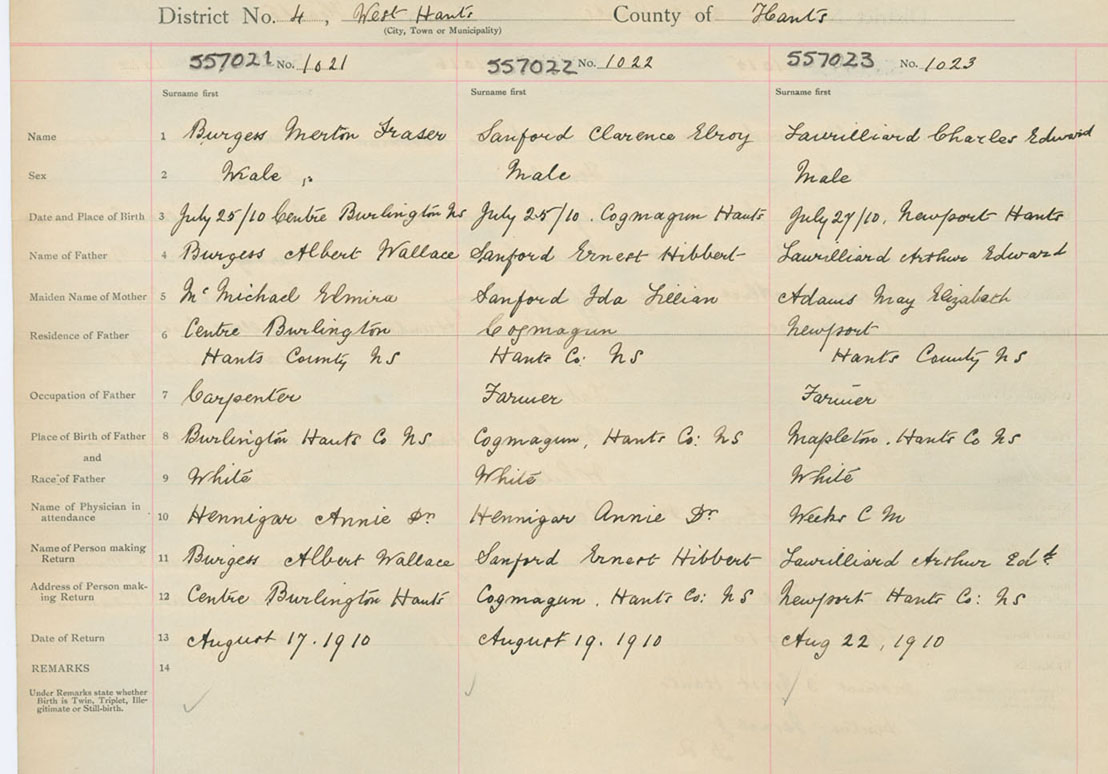 District No. 4, West Hants County of Hants
(City, Town or Municipality)
557021 No. 1021 557022 No. 1022 557023 No. 1023
Surname first Surname first Surname first
Name 1 Burgess Merton Fraser Sanford Clarence Elroy Laurilliard Charles Edward
Sex 2 Male Male Male
Date and Place of Birth 3 July 25/10 Centre Burlington NS July 25/10. Cogmagun Hants July 27/10, Newport Hants
Name of Father 4 Burgess Albert Wallace Sanford Ernest Hibbert Laurilliard Arthur Edward
Maiden Name of Mother 5 Mc Michael Elmira Sanford Ida Lillian Adams May Elizabeth
Residence of Father 6 Centre Burlington Cogmagun Newport
Hants County NS Hants Co: NS Hants County NS
Occupation of Father 7 Carpenter Farmer Farmer
Place of Birth of Father 8 Burlington Hants Co NS Cogmagun, Hants Co: NS Mapleton. Hants Co NS
and
Race of Father 9 White White White
Name of Physician in
attendance 10 Hennigar Annie Dr Hennigar Annie Dr Weeks C M
Name of Person making
Return 11 Burgess Albert Wallace Sanford Ernest Hibbert Laurilliard Arthur Edd
Address of Person mak-
ing Return 12 Centre Burlington Hants Cogmagun, Hants Co: NS Newport Hants Co: NS
Date of Return 13 August 17. 1910 August 19. 1910 Aug 22, 1910
REMARKS 14
Under Remarks state whether
Birth is Twin, Triplet, Ille-
gitimate or Still-birth.